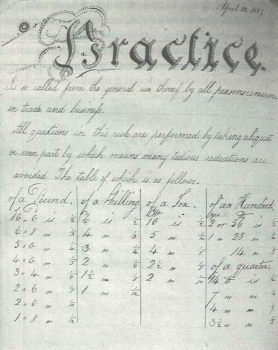 April 10, 18
Practice
Is so called from the general use thereof by all persons concerned
in trade and business.
All questions in this rule are performed by taking aliquot
or even parts by which means many tedious reductions are
avoided. The table of which is as follows.
of a Pound. of a Shilling of a Ton. of an Hundred
10,,0 is ½ 6 is ½ 10 is ½ 2 or 56 is ½
6,,8 " ⅓ 4 " ⅓ 5 " ¼ 1 or 28 " ¼
5,,0 " ¼ 3 " ¼ 4 " ⅕ 14 "
4,,0 " ⅕ 2 " 2½ " of a quarter.
3,,4 " 1½ " 2 " 14 is ½
2,,6 " 1 " 7 "
2,,0 " 4 "
1,,8 " 3½ "